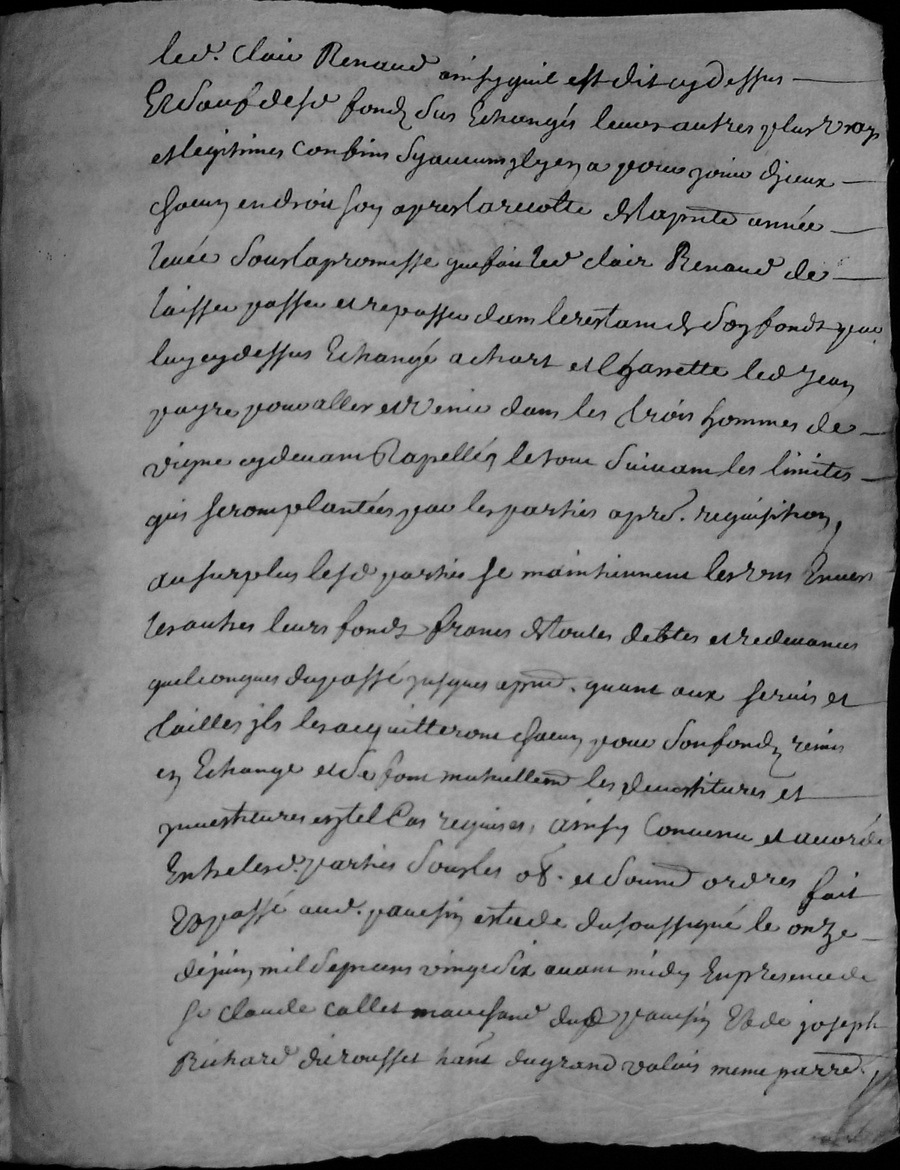 led. Clair Renaud ainsy quil est dit cy dessus
Et sauf desd fondz sus Echangés leurs autres plus vrays
et legitimes confins sy aucuns yl y en a pour joüir d'jceux
chacun en droit soy apres la recolte de la pnte année
levée sous la promesse que fait led Clair Renaud de
laisser passer et repasser dans le restant de son fondz par
luy cy dessus Echangé a chart et Charrette led Jean
payre pour aller et venir dans les trois hommes de
vigne cy devant Rapellés le tout suivant les limites
qui seront plantées par les parties apre. requisition,
au surplus lesd parties se maintiennent les uns Envers
les autres leurs fondz francs de toutes debtes et redevances
quelconques du passé jusques apnt. quant aux servis et
tailles jls les acquitteront chacun pour son fondz remis
en Echange et se font mutuellemt les devestitures et
jnvestitures en tel Cas requises, ainsy Convenu et accordé
Entre lesd. parties sous les ob. et soumd ordres fait
Et passé aud. paucin estude du soussigné le onze
dejuin mil sept cens vingt six avant midy En presence de
Sr claude callet marchand dud paucin Et de joseph
Richard dit rousset hant du grand valuis meme parre.